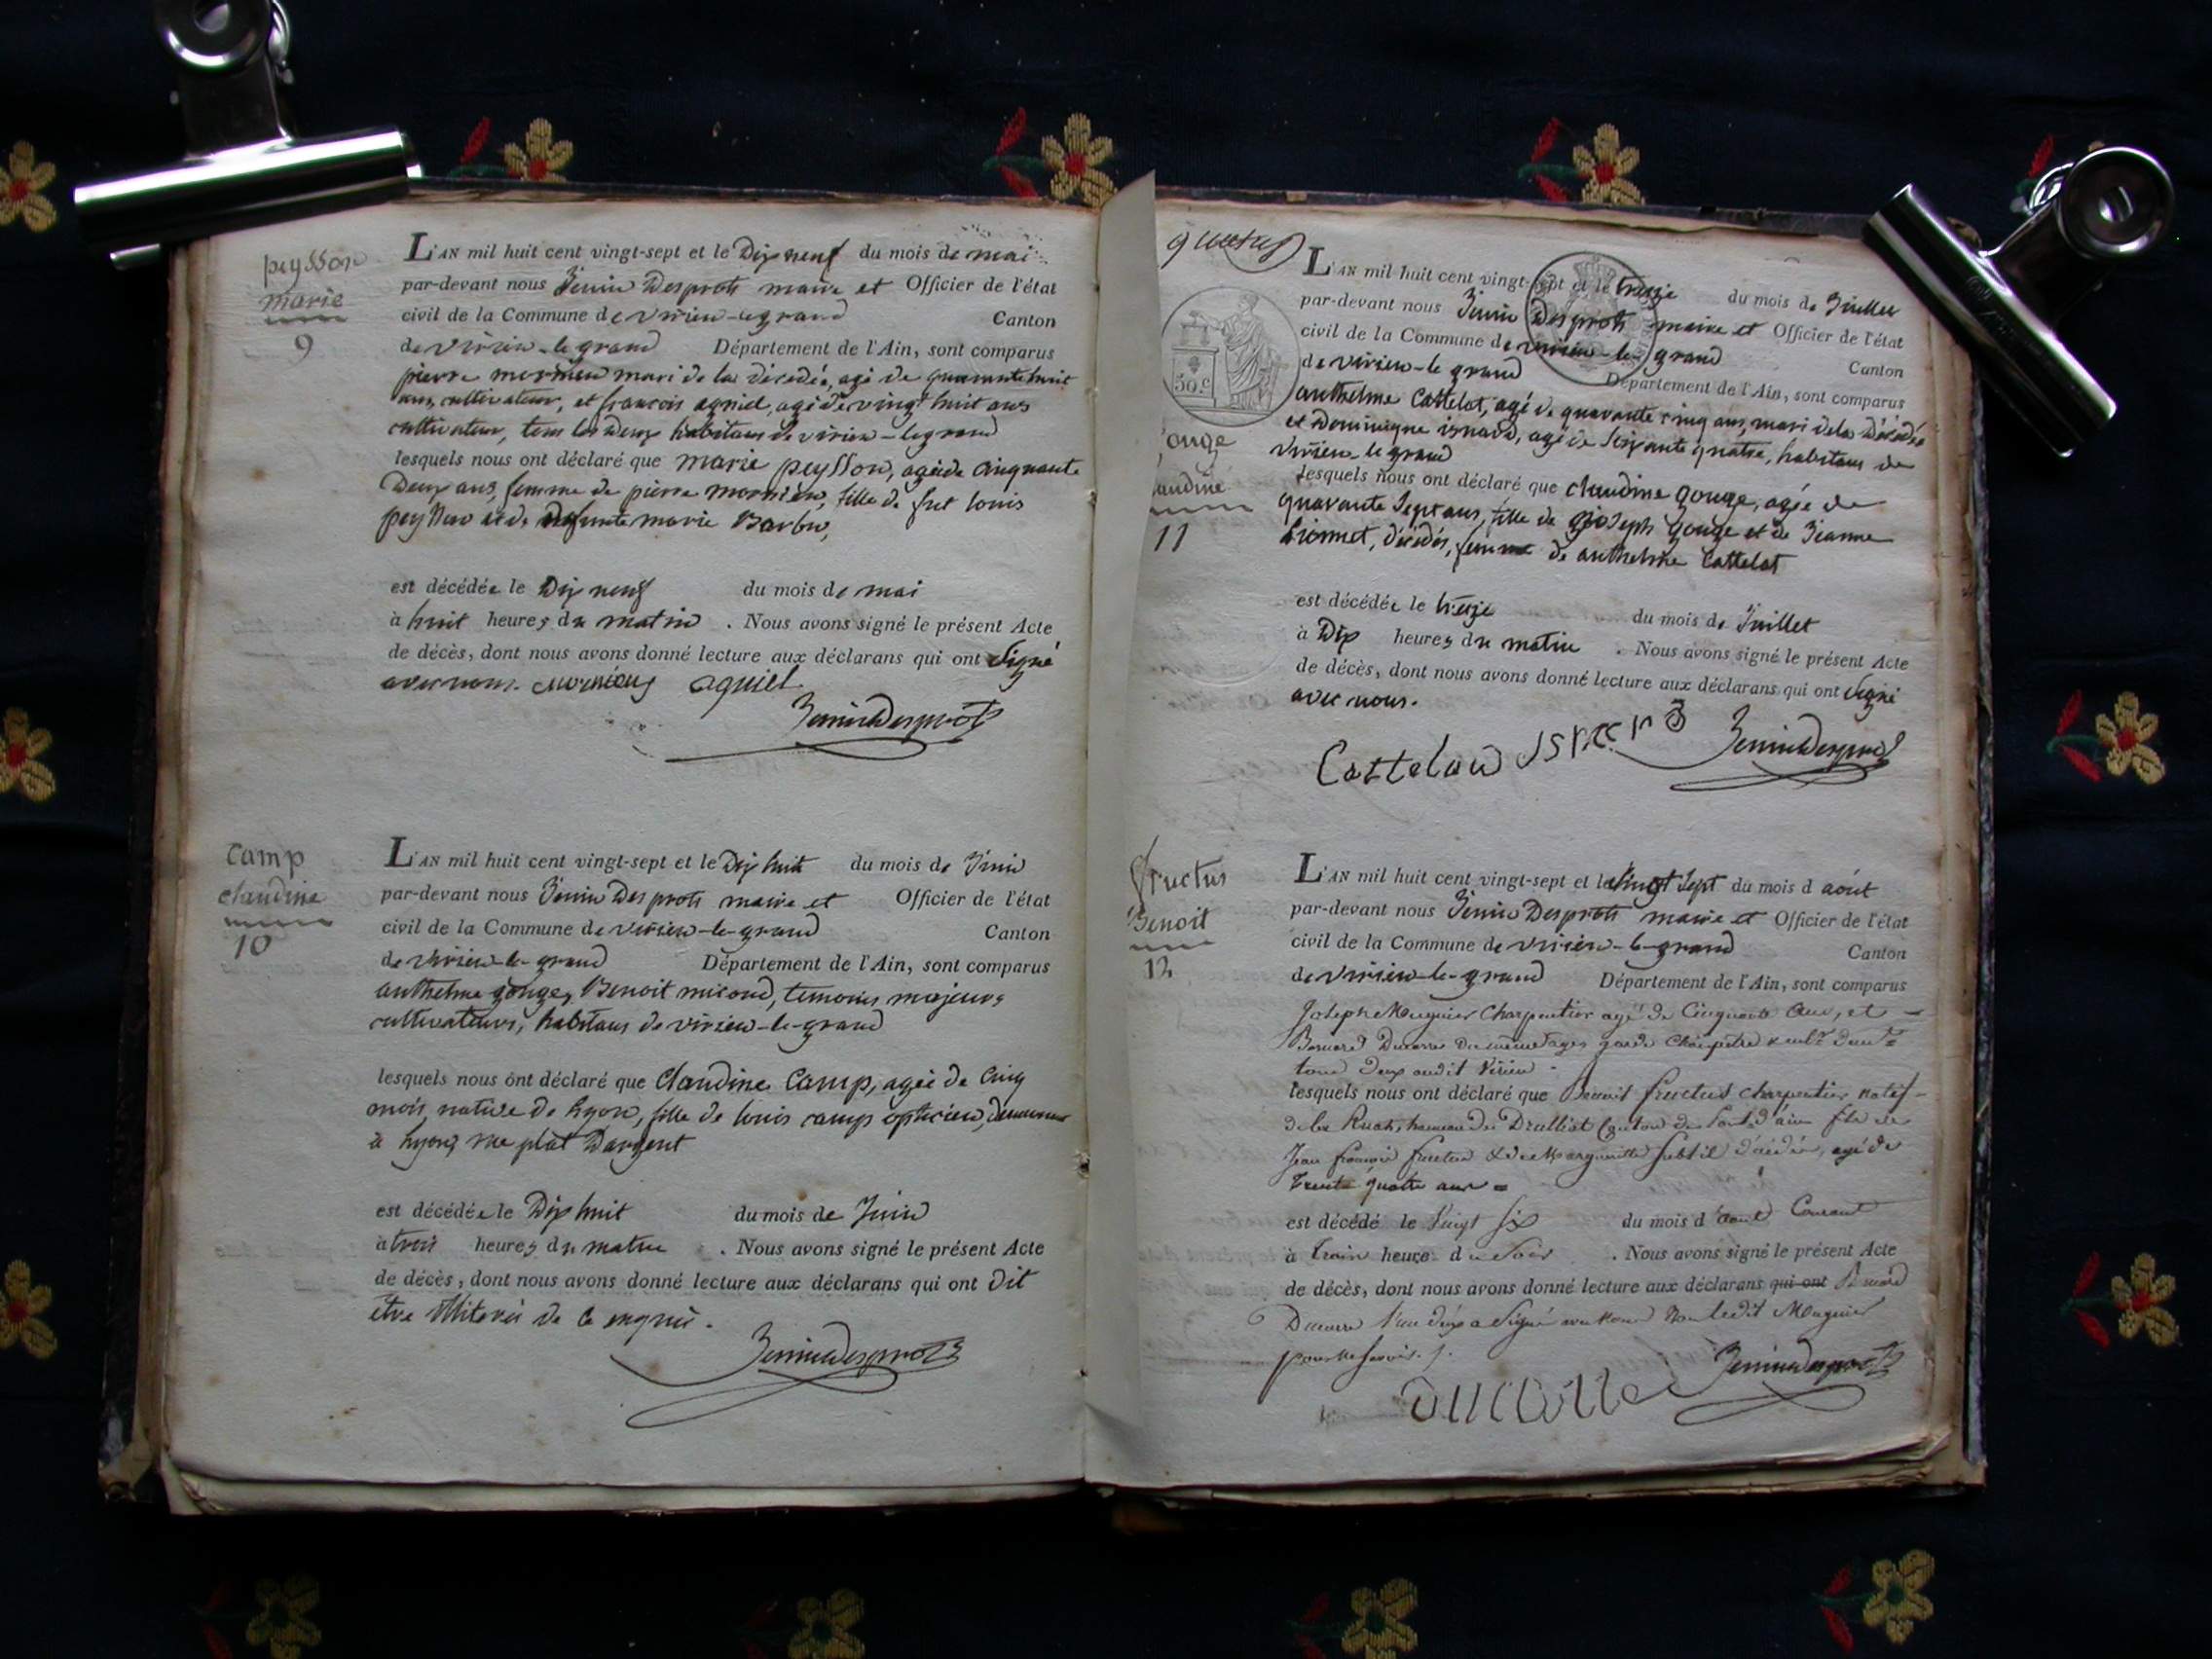 peysson
marie
9
L'AN mil huit cent vingt-sept et le Dix neuf du mois de mai
par-devant nous Jenin Desprots maire et Officier de l'état
civil de la Commune de virieu-legrand Canton
de virieu-le grand Département de l'Ain, sont comparus
pierre mornieu mari de la décédée, agé de quarante huit
ans, cultivateur, et francois agniel, agé de vingt huit ans
cultivateur, tous les deux habitans de virieu-legrand
lesquels nous ont déclaré que marie peysson, agée de cinquante
Deux ans, femme de pierre mornieu, fille de feu louis
peysson et de defunte marie Barbu,
est décédée le Dix neuf du mois de mai
à huit heures du matin . Nous avons signé le présent Acte
de décès, dont nous avons donné lecture aux déclarans qui ont Signé
avec nous. mornieu agniel
JeninDesprots
Camp
claudine
10
L'AN mil huit cent vingt-sept et le Dix huit du mois de Juin
par-devant nous Jenin Desprots maire et Officier de l'état
civil de la Commune de virieu-le-grand Canton
de virieu-le-grand Département de l'Ain, sont comparus
anthelme gouge, Benoit micoud, temoins majeurs
cultivateurs, habitans de virieu-le-grand
lesquels nous ont déclaré que Claudine Camp, agée de Cinq
mois, native de Lyon, fille de louis camp opticien, demeurant
à Lyon, rue plat Dargent
est décédée le Dix huit du mois de Juin
à trois heures du matin . Nous avons signé le présent Acte
de décès, dont nous avons donné lecture aux déclarans qui ont dit
être illiterés de ce enquis.
JeninDesprots
L'AN mil huit cent vingt-sept et le treize du mois de Juillet
par-devant nous Jenin Desprots maire et Officier de l'état
civil de la Commune de virieu-le-grand Canton
de virieu-le grand Département de l'Ain, sont comparus
30.c
anthelme Cattelat, agé de quarante cinq ans, mari dela Décédée
et Dominique isnard, agé de Soixante quatre, habitans de
virieu-le grand
ouge
audine
11
lesquels nous ont déclaré que claudine gouge, agée de
quarante Sept ans, fille de Joseph gouge et de Jeanne
décédés, femme de anthelme Cattelat
est décédée le treize du mois de Juillet
à Dix heures du matin . Nous avons signé le présent Acte
de décès, dont nous avons donné lecture aux déclarans qui ont Signé
avec nous.
JeninDesprots
fructus
Benoit
12
L'AN mil huit cent vingt-sept et le vingt Sept du mois d août
par-devant nous Jenin Desprots maire et Officier de l'état
civil de la Commune de virieu-le-grand Canton
de virieu-le-grand Département de l'Ain, sont comparus
Joseph Muguier Charpentier agé de Cinquante Ans, et
Bernard Ducarre du même age, garde Champêtre
tous deux audit Virieu
lesquels nous ont déclaré que Benoit fructus charpentier natif
hameau de Druillat Canton de Pont d'ain fils de
Jean françois fructus & de Marguerite Subtil décédés, agé de
trente quatre ans =
est décédé le Vingt six du mois d août Courant
à trois heures du Soir . Nous avons signé le présent Acte
de décès, dont nous avons donné lecture aux déclarans qui ont Bernard
Ducarre l'un d'eux a Signé avec Nous Non ledit Muguier
pour ne savoir.
JeninDesprots